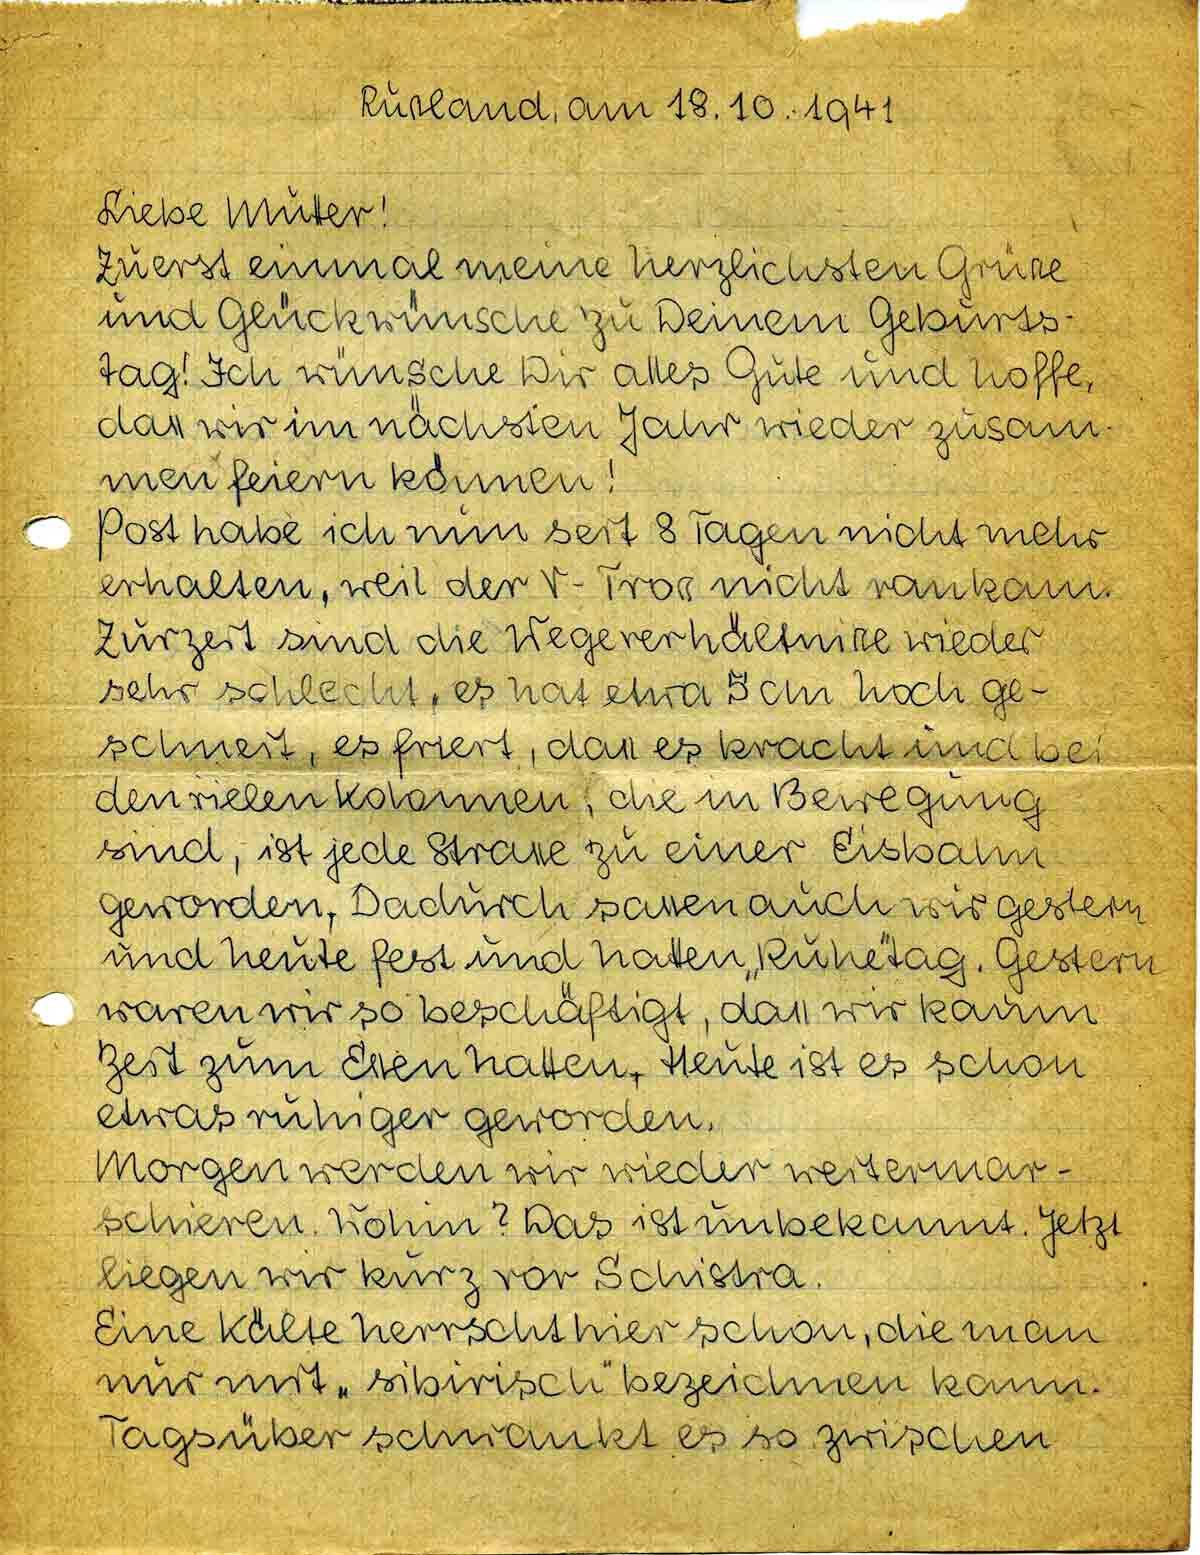 Rußland, am 18.10.1941
Liebe Mutter!
Zuerst einmal meine herzlichsten Grüße
und Glückwünsche zu Deinem Geburts-
tag! Ich wünsche Dir alles Gute und hoffe,
daß wir im nächsten Jahr wieder zusam-
men feiern können!
Post habe ich nun seit 8 Tagen nicht mehr
erhalten, weil der V-Troß nicht rankam.
Zurzeit sind die Wegeverhältniße wieder
sehr schlecht, es hat etwa 5 cm hoch ge-
schneit, es friert, daß es kracht und bei
den vielen Kolonnen, die in Bewegung
sind, ist jede Straße zu einer Eisbahn
geworden. Dadurch saßen auch wir gestern
und heute fest und hatten „Ruhe"tag. Gestern
waren wir so beschäftigt, daß wir kaum
Zeit zum Eßen hatten. Heute ist es schon
etwas ruhiger geworden.
Morgen werden wir wieder weitermar-
schieren. Wohin? Das ist unbekannt. Jetzt
liegen wir kurz vor Schistra.
Eine Kälte herrscht hier schon, die man
nur mit „sibirisch" bezeichnen kann.
Tagsüber schwankt es so zwischen